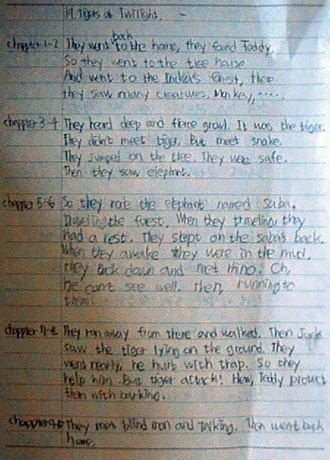 19. Tigers at Twilight.
chapter 1-2 They went back to the home, they found Teddy.
So they went to the tree house
And went to the India's forest, there
they saw many creatures. Monkey, .....
chappter 3-4 They heard deep and fierce growl. It was the tiger.
They didn't meet tiger. But meet snake.
They jumped on the tree. They were safe.
Then they saw elephant.
chappter 5-6 So they rode the elephant named Saba.
Traveling the forest. When they traveling, they
had a rest. They slept on the saba's back.
When they awake they were in the mud.
They down and met rhino. Oh,
he can't see well. Then, running to
them!
chappter 7-8 They ran away from there and walked. Then Jack
saw the tiger lying on the ground. They
went nearly, he hurt with trap. So they
help him. But tiger attack! How, Teddy protect
them with barking.
chappter They meet blind man and talking. Then went back
home.